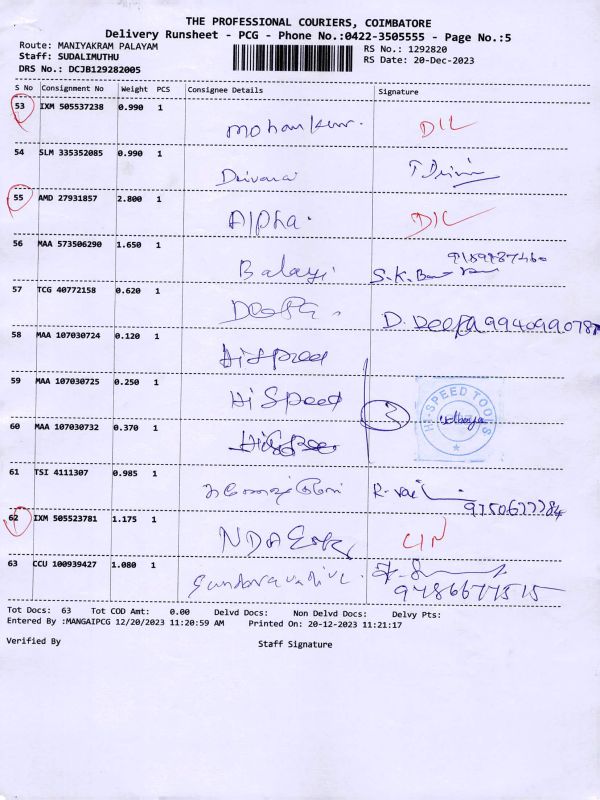 THE PROFESSIONAL COURIERS, COIMBATORE
Delivery Runsheet - PCG - Phone No.:0422-3505555 - Page No.:5
Route: MANIYAKRAM PALAYAM
RS No.: 1292820
Staff: SUDALIMUTHU
RS Date: 20-Dec-2023
DRS No.: DCJB129282005
S No Consignment No Weight PCS Consignee Details Signature
53 IXM 505537238 0.990 1 Mohankumar. DIL
54 SLM 335352085 0.990 1
55 AMD 27931857 2.800 1 Alpha. DIL
56 MAA 573506290 1.650 1 Balaji S.K.
57 TCG 40772158 0.620 1 Deepa. D. Deepa 9940990787
58 MAA 107030724 0.120 1 Hi Speed
59 MAA 107030725 0.250 1 Hi Speed
3
HI-SPEED TOOLS
60 MAA 107030732 0.370 1 Hi Speed
61 TSI 4111307 0.985 1 R.
62 IXM 505523781 1.175 1
63 CCU 100939427 1.080 1 9486677515
Tot Docs: 63 Tot COD Amt: 0.00 Delvd Docs: Non Delvd Docs: Delvy Pts:
Entered By :MANGAIPCG 12/20/2023 11:20:59 AM Printed On: 20-12-2023 11:21:17
Verified By Staff Signature